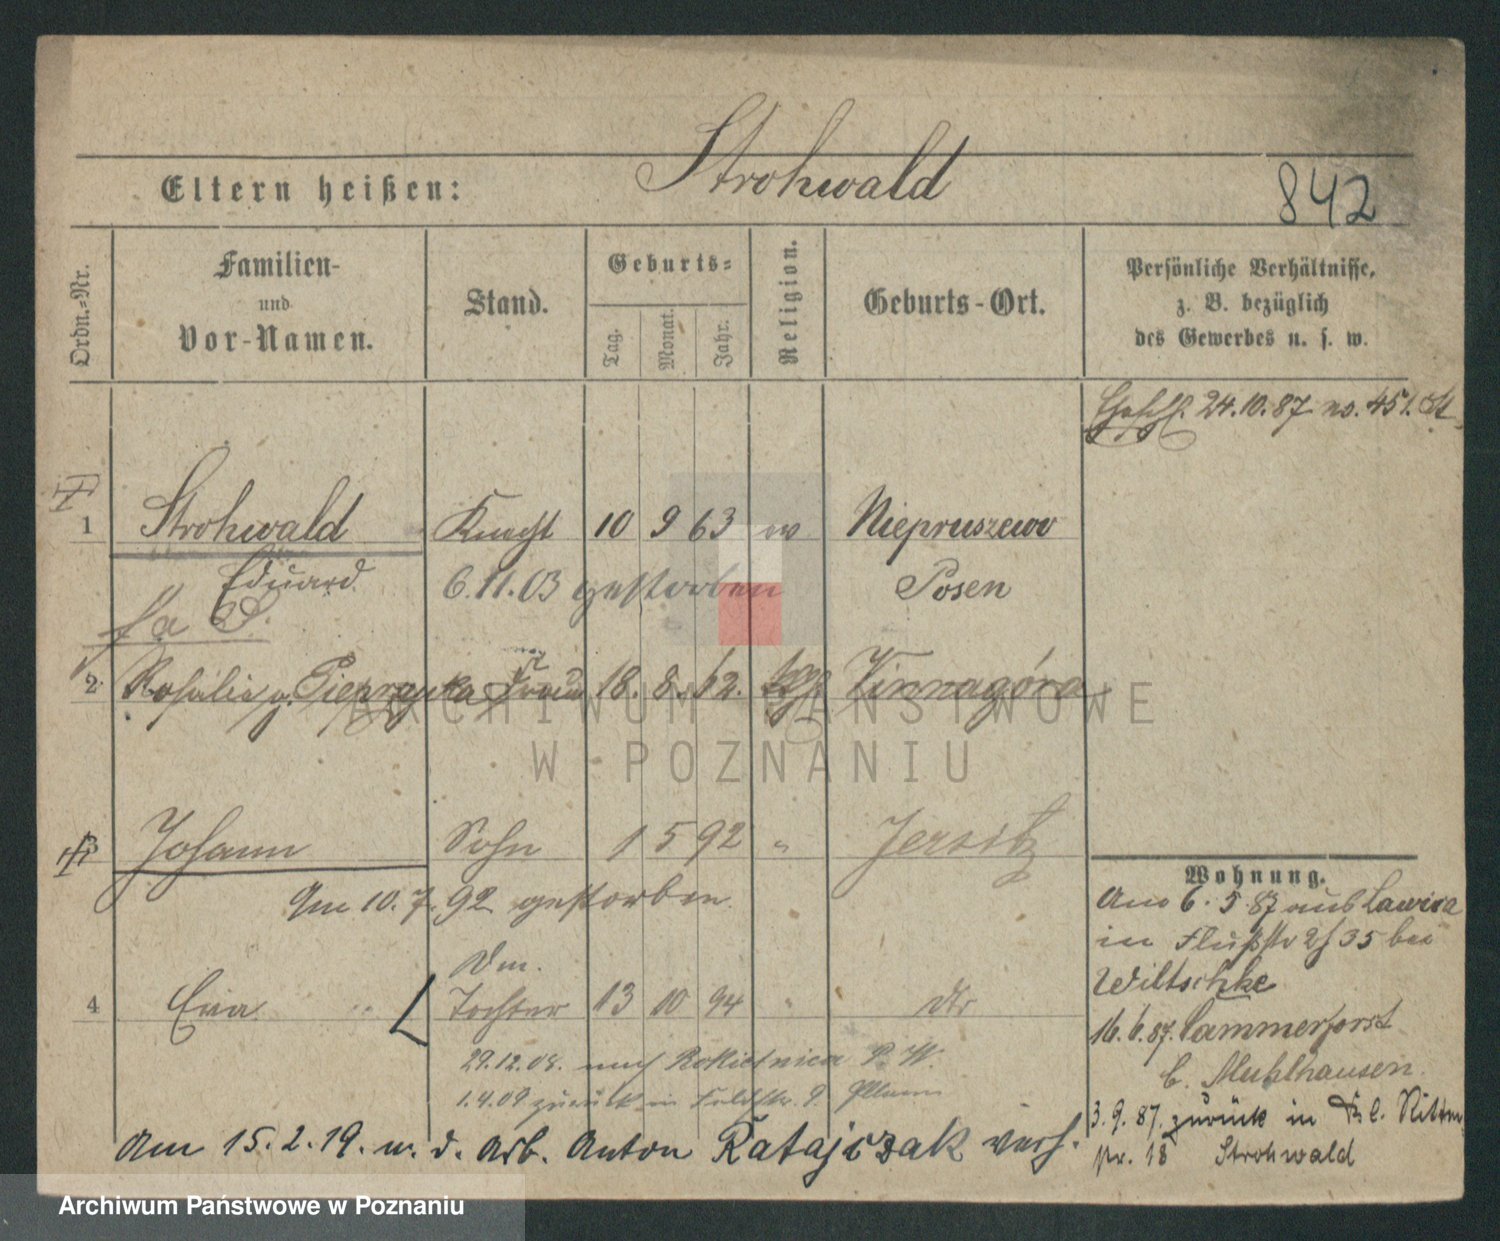 Strohwald
Eltern heißen:
842
Ordn.-Nr.
Familien-
und
Vor-Namen.
Stand.
Geburts-
Tag.
Monat.
Jahr.
Religion.
Geburts-Ort.
Persönliche Verhältnisse,
z. B. bezüglich
des Gewerbes u. s. w.
24.10.87 no. 451. St
1 Strohwald Knecht 10 9 63 ev Niepruszewo
Eduard 6.11.03 gestorben Posen
2 Rosalie g. Frau 18. 8. 62. kgl Winnagóra
3 Johann Sohn 1 5 92 " Jersitz
Am 10.7.92 gestorben.
4 Eva " Tochter 13 10 94 " dto
29.12.08. nach Rokietnica P. W.
1.4.09 zurück in Feldstr. 9
Am 15.2.19. m. d. Arb. Anton Ratajczak verh.
Wohnung.
Am 6.5.87 aus Lawica
in Flußstr 35 bei
Wiltschke
16.6.87. Cammerforst
b. Muhlhausen.
3.9.87. zurück in
18 Strohwald
ARCHIWUM PAŃSTWOWE
W POZNANIU
Archiwum Państwowe w Poznaniu